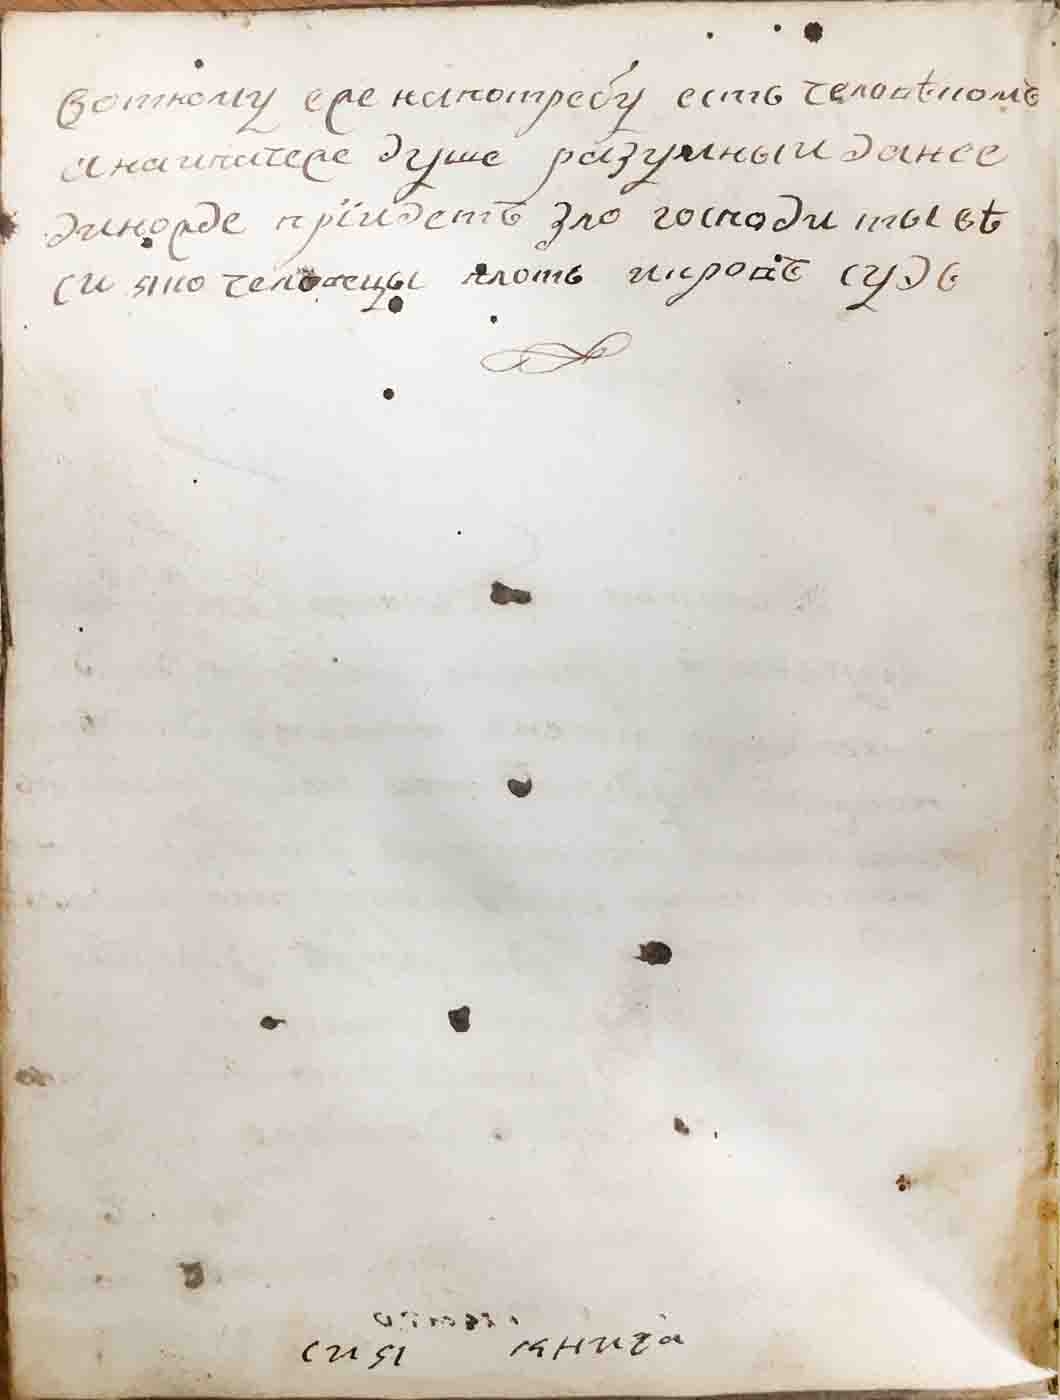 воткому еже напотребу есть человѣкомъ
анаипаче душе разумный данее
диножде прїидетъ зло господи ты вѣ
си яко человецы плоть икровъ судь
сия книга